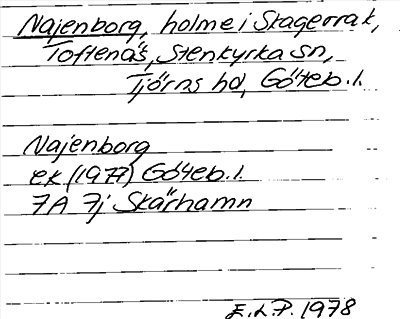 Najenborg, holme i Skagerrak,
Toftenäs, Stenkyrka sn,
Tjörns hd, Göteb. l.
Najenborg
ek (1977) Göteb. l.
7A 7j Skärhamn
E.L.P. 1978